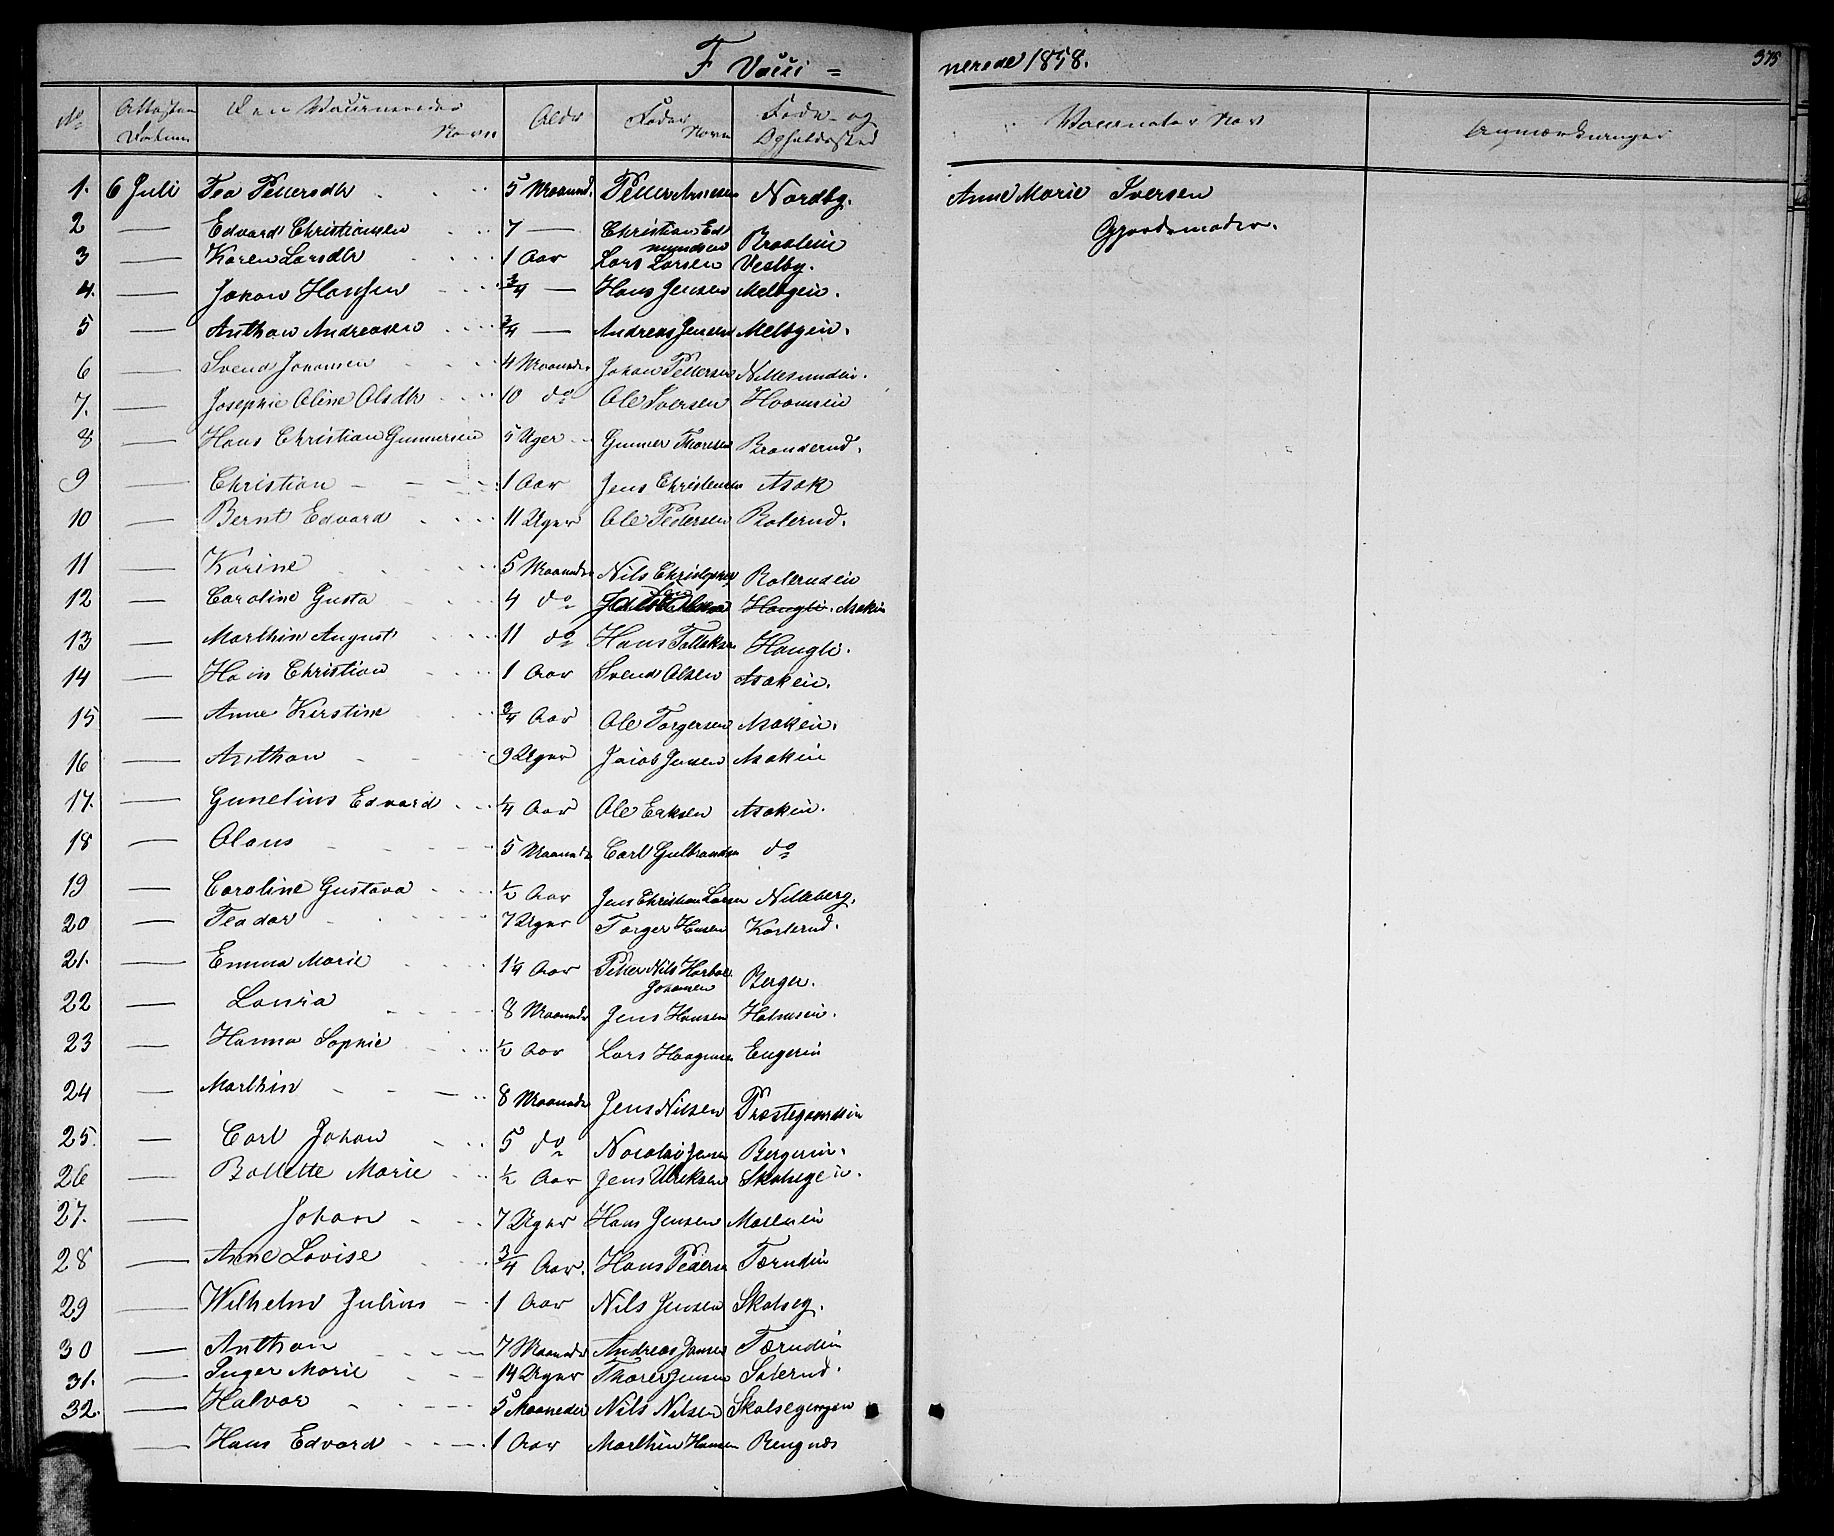 F Vacci=
nerede 1858.
375
No
Attestens Datum
Den Vaccineredes Navn
Alder
Faders Navn
Føde- og Opholdssted
Vaccinators Navn
Anmærkninger
1. 6 Juli Tea Pettersdtr 5 Maaned. Petter Arnesen Nordby. Anne Marie Iversen
Gjordemoder.
2 — Edvard Christiansen 7 — Christian Edmundsen Braatein
3 — Karen Larsdtr 1 Aar Lars Larsen Vestby.
4. — Johan Hansen 3/4 — Hans Jensen Melbyein.
5 — Anthon Andreasen 3/4 — Andreas Jensen Melbyein.
6 — Svend Johansen 4 Maaneder Johan Pettersen Nillesundein.
7. — Josephie Oline Olsdtr 10 do Ole Iversen
8 — Hans Christian Gunnersen 5 Uger Gunner Thoresen Branderud.
9 — Christian 1 Aar Jens Christensen Asak
10 — Bernt Edvard 11 Uger Ole Pedersen Bolerud.
11 — Karine 5 Maaneder Nils Christophersen Bolerudein
12 — Caroline Gusta 4 do Haugli. Asakein
13 — Marthin August 11 do Hans Tolleksen Haugli.
14 — Hans Christian 1 Aar Svend Olsen Asakein.
15 — Anne Kirstine 3/4 Aar Ole Torgersen Asakein.
16 — Anthon 9 Uger Jacob Jensen Asakein
17. — Gunelius Edvard 1/4 Aar Ole Eriksen Asakein.
18 — Olaus 5 Maaneder Carl Gulbrandsen do
19 — Caroline Gustava 1/2 Aar Jens Christian Larsen Nilleberg.
20 — Teodor 7 Uger Torger Hansen Karterud.
21. — Emma Marie 1 1/4 Aar Petter Nils Johansen Berger.
22 — Lovisa 8 Maaneder Jens Hansen Holmsein.
23 — Hanna Sophie 1/2 Aar Lars Haagensen Engerein
24 — Marthin 8 Maaneder Jens Nilsen Præstegaardsein
25. — Carl Johan 5 do Nocolai Jensen Bergerein.
26 — Bollette Marie 1/2 Aar Jens Ulriksen Skolsegein.
27. — Johan 7 Uger Hans Jensen Moenein
28 — Anne Lovise 3/4 Aar. Hans Pedersen Tærudein
29 — Wilhelm Julius 1 Aar Nils Jensen Skolseg.
30 — Anthon 7 Maaneder Andreas Jansen Tærudein
31. — Inger Marie 14 Uger Thorer Jensen Solerud.
32. — Halvor 5 Maaneder Nils Nilsen Skolsegengen
— Hans Edvard 1 Aar Marthin Hansen Bengnæs